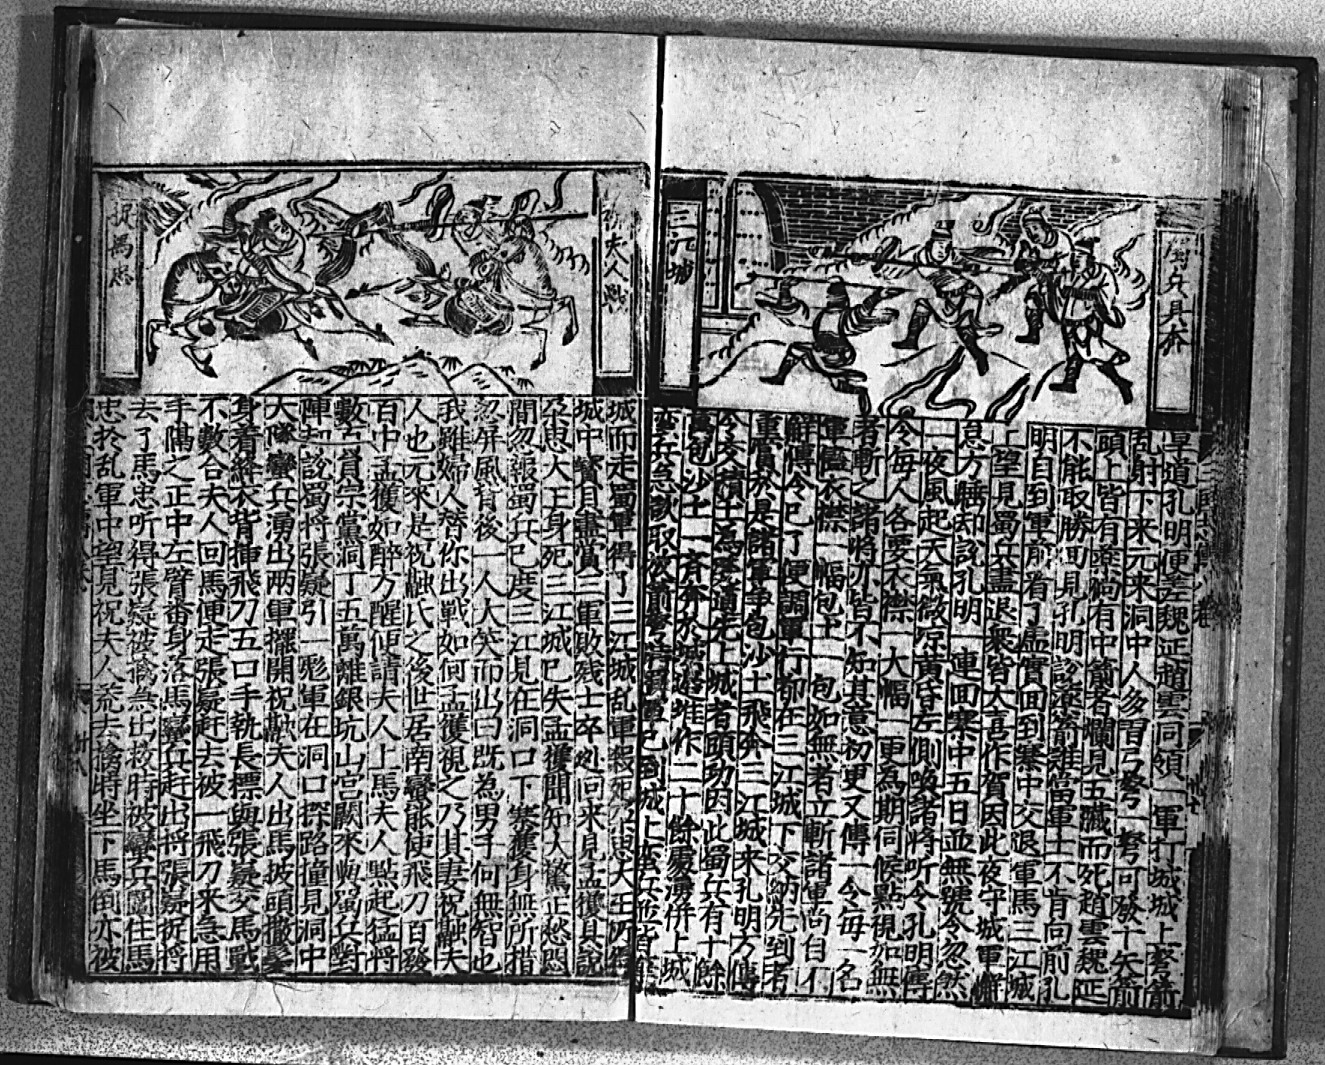 三江城
早道孔明便差魏延趙雲同領一軍打城城上弩箭
乱射下来元来洞中人多習弓弩一弩可發十矢箭
頭上皆有藥但有中箭者皮爛見五臟而死趙雲魏延
不能取勝回見孔明說藥箭難當軍士不肯向前孔
明自到軍前看了虛實回到寨中交退軍馬三江城
上望見蜀兵盡退衆皆大言作賀因此夜守城軍懈
怠方睡却說孔明一連回寨中五日並無號令忽然
一夜風起天氣微凉黃昏左側喚諸將听令孔明傳
令每人各要衣襟一大幅一更為期伺候點視如無
者斬之諸將亦皆不知其意初更又傳一令每一名
軍儘衣襟一幅包土一包如無者立斬諸軍尚自不
解傳令已了便調軍行都在三江城下交納先到者
重賞於是諸軍爭包沙土飛奔三江城來孔明方傳
令交積土為蹬道先上城者頭功因此蜀兵有十餘
萬包沙土一齊奔於城邊堆作二十餘處湧併上城
蠻兵急欲取放箭弩時蜀軍已到城上蠻兵
夫人戰
捉馬忠
城而走蜀軍得了三江城乱軍殺死朵思大王所得
城中寶貝盡賞三軍敗残士卒迯回来見孟獲具說
朵思大王身死三江城已失孟獲聞知大驚正愁悶
間忽報蜀兵已度三江見在洞口下寨獲身無所措
忽屏風背後一人大笑而出曰既為男子何無智也
我雖婦人替你出戰如何孟獲視之乃其妻祝融夫
人也元來是祝融氏之後世居南蠻能使飛刀百發
百中孟獲如醉方醒便請夫人上馬夫人點起猛將
數百員宗黨洞丁五萬離銀坑山宮闕來與蜀兵對
陣却說蜀将張嶷引一彪軍在洞口探路撞見洞中
大隊蠻兵湧出两軍擺開祝融夫人出馬披頭撒髮
身着絳衣背揷飛刀五口手執長標與張嶷交馬戰
不數合夫人回馬便走張嶷赶去被一飛刀來急用
手隔之正中左臂番身落馬蠻兵赶出将張嶷捉將
去了馬忠听得張嶷被擒急出救時被蠻兵圍住馬
忠於乱軍中望見祝夫人荒去擒時坐下馬倒亦被